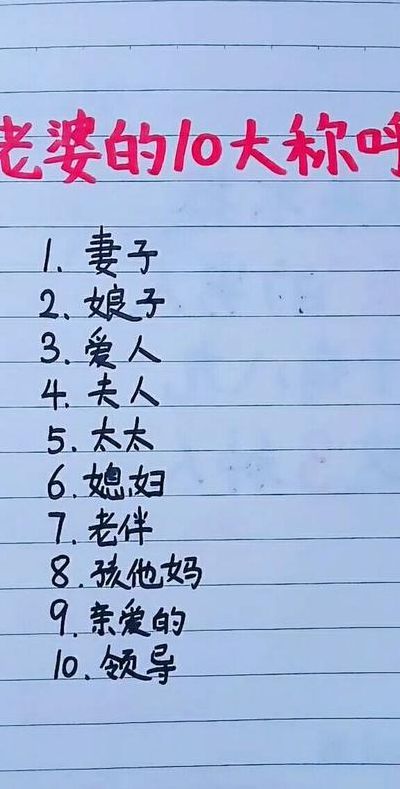 老婆的10大称呼
1. 妻子
2. 娘子
3. 爱人
4. 夫人
5. 太太
6. 媳妇
7. 老伴
8. 孩他妈
9. 亲爱的
10. 领导